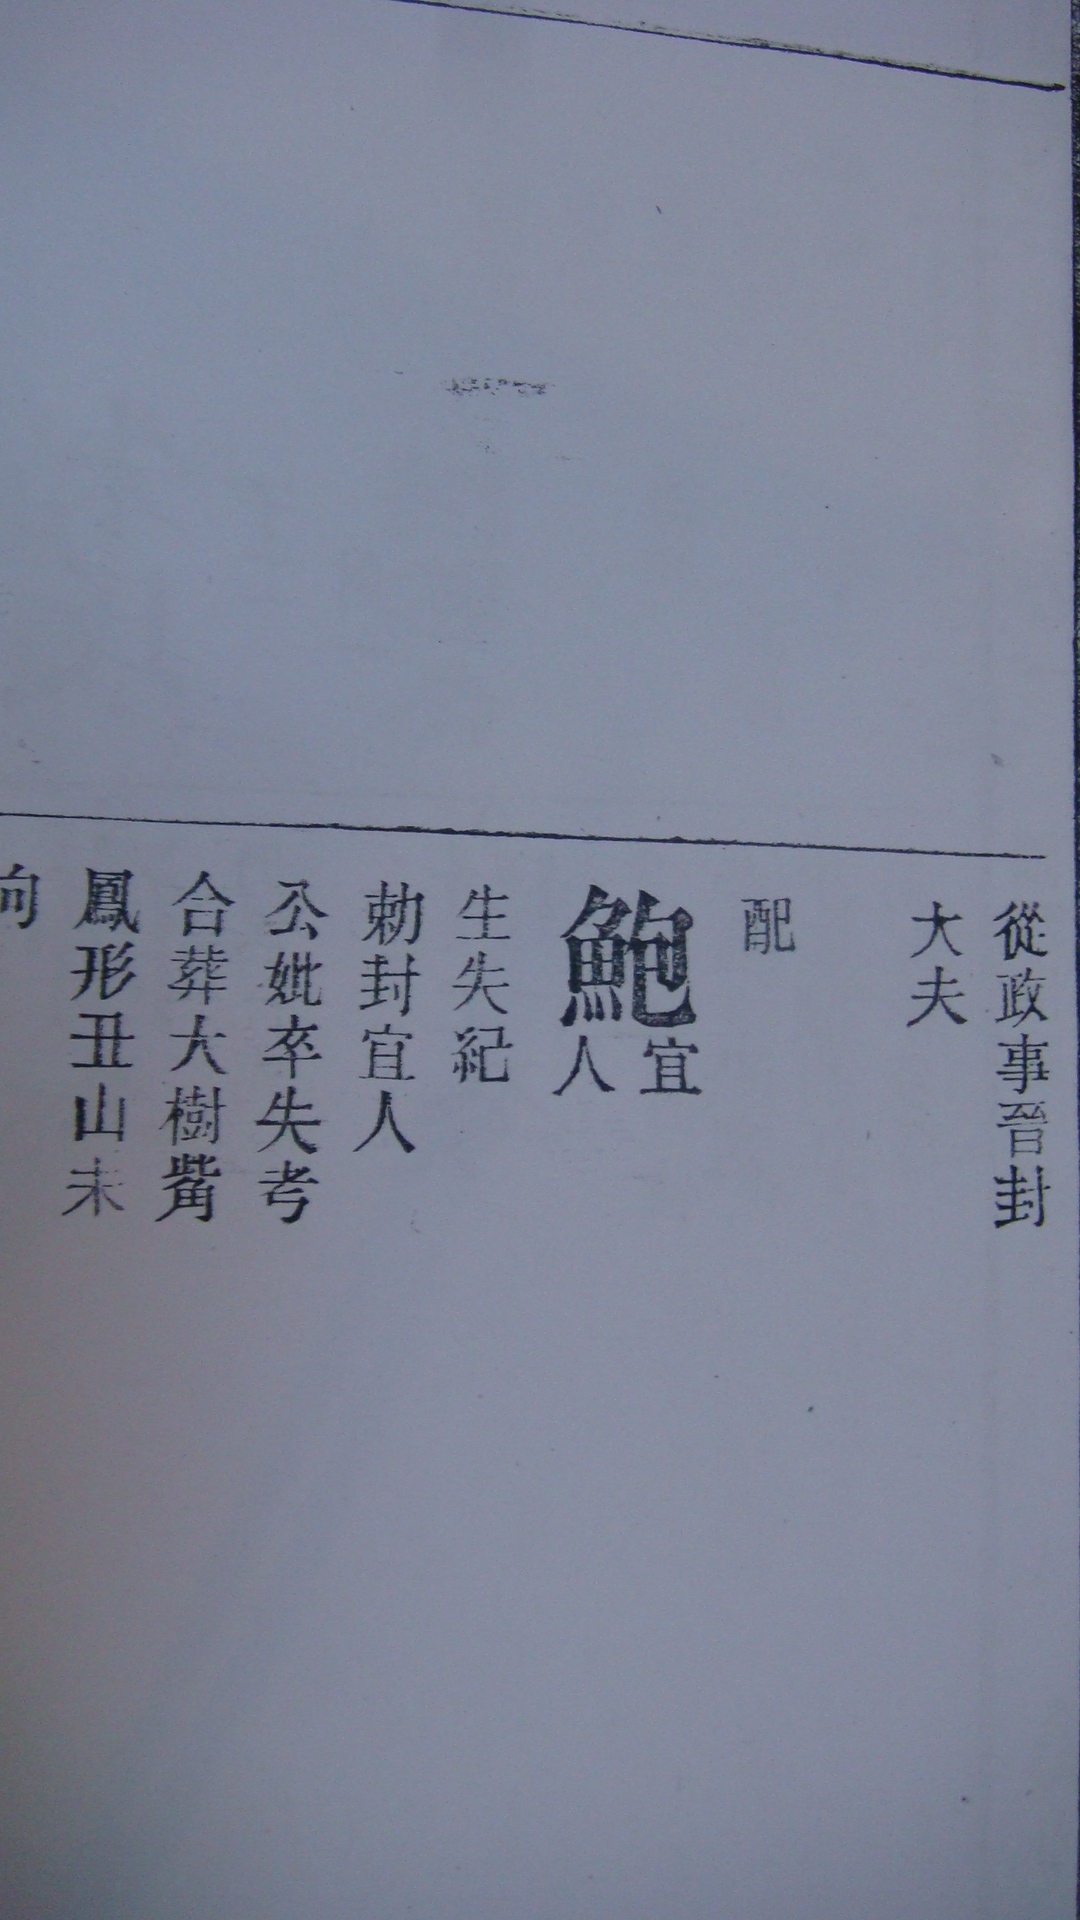 從政事晉封
大夫
配
鮑宜人
生失紀
勅封宜人
公妣卒失考
合葬大樹觜
鳳形丑山未
向